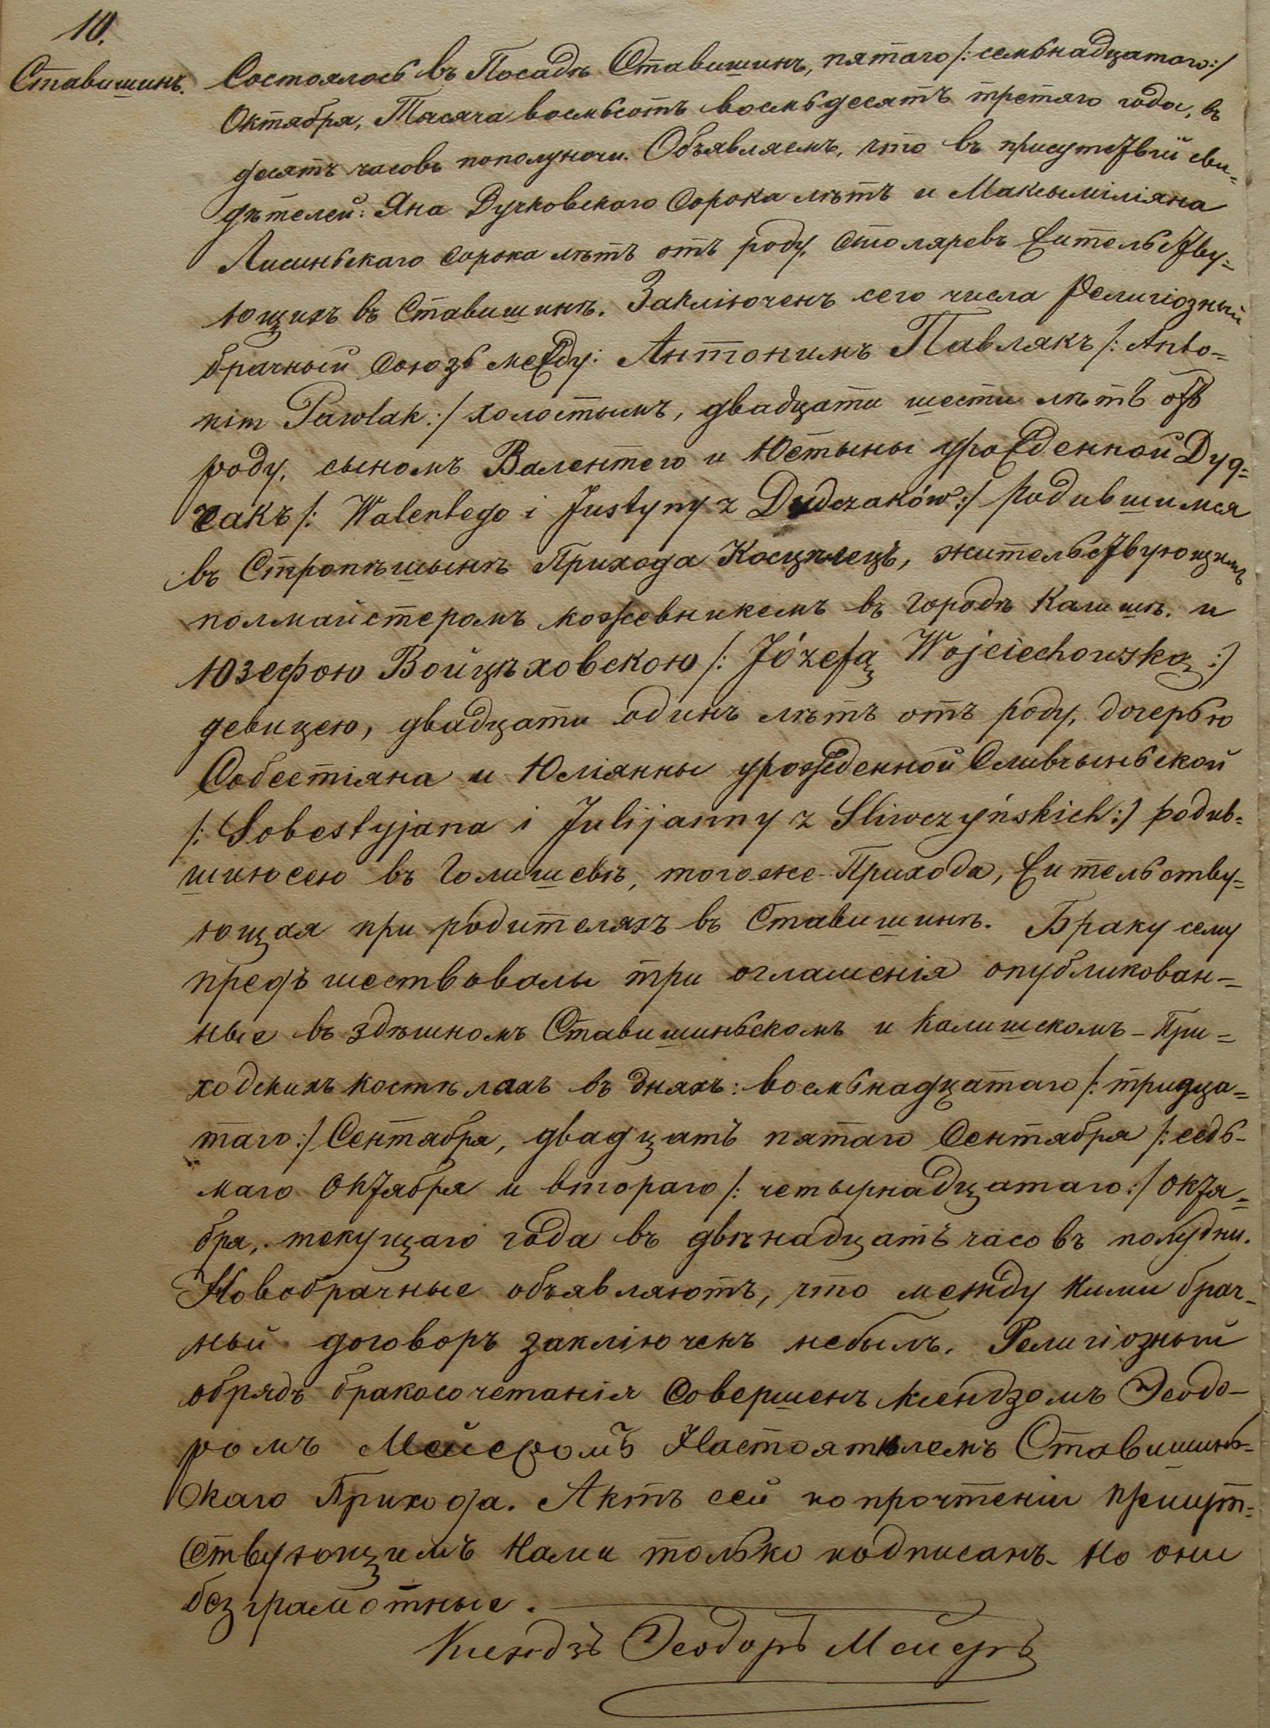 10.
Ставишинъ.
Состоялось въ Посадѣ Ставишинъ, пятаго /: семьнадцатого :/
Октября, Тысяча восемьсотъ восемьдесятъ третяго года, въ
десять часовъ пополуночи. Объявляемъ, что въ присутствіи сви-
дѣтелей: Яна Дучковскаго сорока лѣтъ и Максыміліяна
Лисиньскаго сорока лѣтъ отъ роду, столяревъ жительству-
ющихъ въ Ставишинѣ. Заключенъ сего числа религіозный
брачный союзъ между: Антонимъ Павлякъ /: Anto-
nim Pawlak :/ холостымъ, двадцати шести лѣтъ отъ
роду, сыномъ Валентего и Юстыны урожденной Дуд-
чакъ /: Walentego i Justyny z Dudczaków :/ родившимся
въ Стропѣшынѣ Прихода Косцѣлецъ, жительствующимъ
полмайстеромъ кожевникемъ въ городѣ Калишѣ. и
Юзефою Войцѣховскою /: Józefą Wojciechowską :/
девицею, двадцати одинъ лѣтъ отъ роду, дочерью
Собестіяна и Юліянны урожденной Сливчыньской
/: Sobestyjana i Julijanny z Sliwczyńskich :/ родив-
шиюсею въ Голишевѣ, тогоже Прихода, жительству-
ющая при родителяхъ въ Ставишинѣ. Браку сему
предъшествовалы три оглашенія опубликован-
ные въ здѣшномъ Ставишиньскомъ и Калишскомъ - При-
ходскихъ костѣлахъ въ дняхъ: восемьнадцатаго /: тридца-
таго :/ Сентября, двадцать пятаго Сентября /: седь-
маго Октября и втораго /: четырнадцатаго :/ Октя-
бря, текущаго года въ двѣнадцать часовъ полудни.
Новобрачные объявляютъ, что между ними брач-
ный договоръ заключенъ небылъ. Религіозный
обрядъ бракосочетанія совершенъ ксендзомъ Феодо-
ромъ Мейеромъ Настоятѣлемъ Ставишинь-
скаго Прихода. Актъ сей по прочтеніи присут-
ствующимъ Нами только подписанъ. Но они
безграмотные.
Ксендзъ Феодоръ Мейеръ